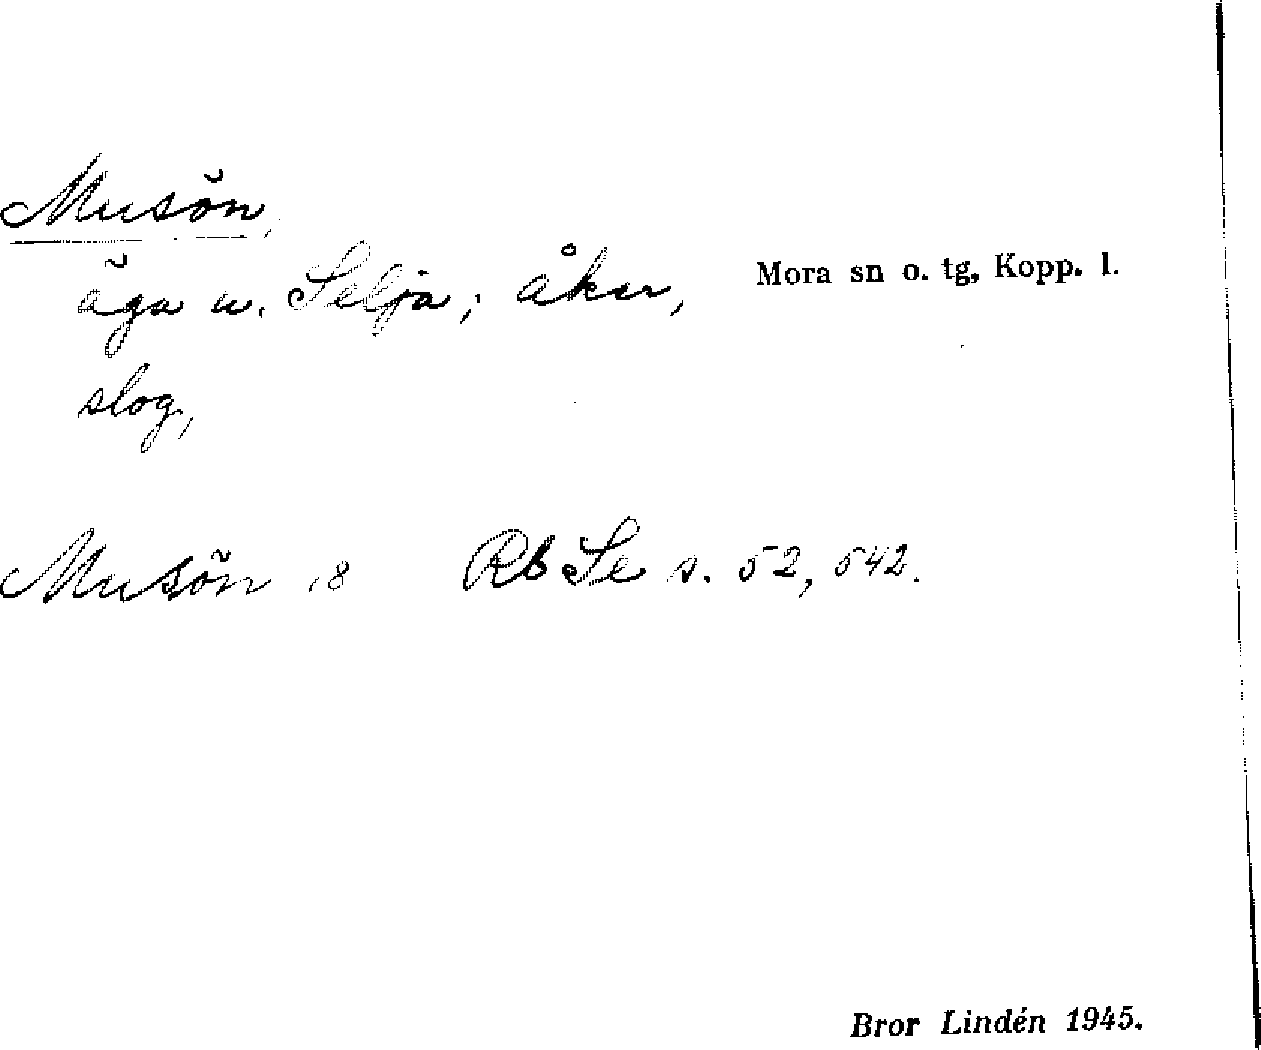 Musön,
äga u. Selja; åker,
Mora sn o. tg, Kopp. l.
slog,
Musön 18 Rb Se s. 52, 542.
Bror Lindén 1945.